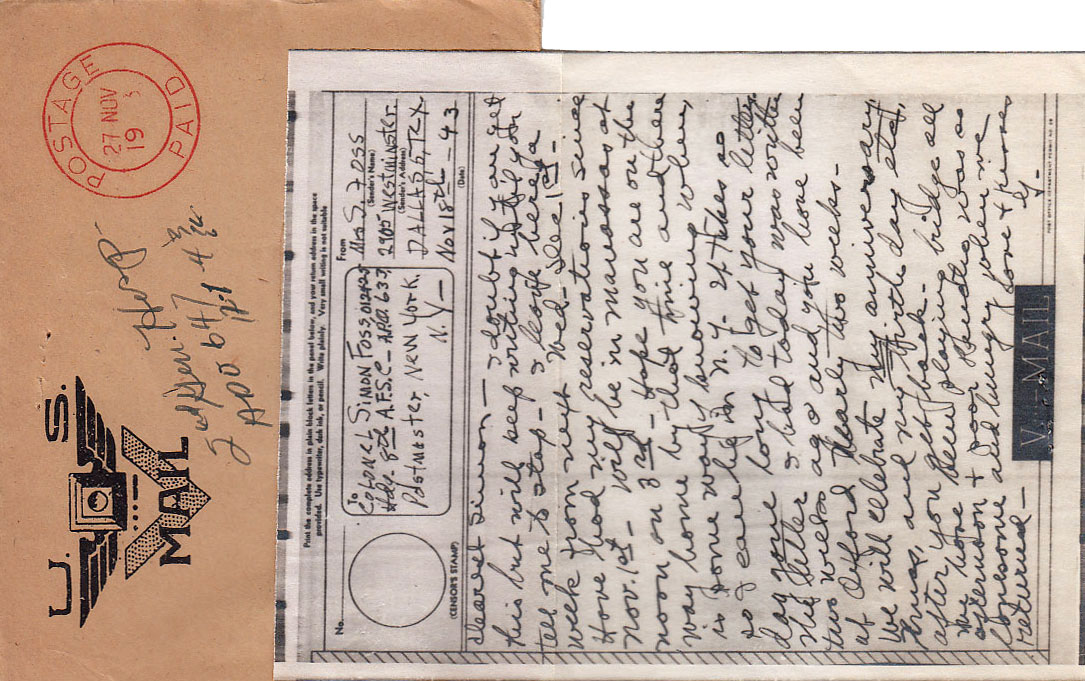 U. S.
MAIL
POSTAGE
PAID
27 NOV
19
Hosp
APO 647
Print the complete address in plain block letters in the panel below, and your return address in the space
provided. Use typewriter, dark ink, or pencil. Write plainly. Very small writing is not suitable
No.
(CENSOR'S STAMP)
To
Colonel SIMON FOSS, 012425
Hdq. 8th A.F.S.C - A.P.O. 633
Postmaster, New York,
N. Y -
From
Mrs. S. Foss
(Sender's Name)
2905 Westminster.
(Sender's Address)
DALLAS 5, TEX
Nov 18th - 43
(Date)
Dearest Simon - I doubt if you get
this but will keep writing until you
tell me to stop - I leave here a
week from next Wed - Dec 1st -
Have had my reservations since
Nov. 1st - Will be in Manassas at
noon on 3rd - Hope you are on the
way home by that time and there
is some way of knowing when,
so I can be in N. Y. It takes so
long to get your letters
I had today was written
two weeks ago and you have been
at Oxford nearly two weeks -
We will celebrate my anniversary
Xmas, and my birthday etc,
after you get back -
We have been playing bridge all
afternoon +
lonesome and hungry when we
returned - Love + kisses
V···—MAIL